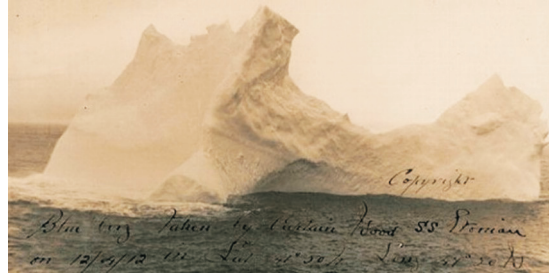 Copyright
Blue berg Taken by Captain Wood SS Etonian
on 12/4/12 in Lat 41° 50 N Long 49° 50 W